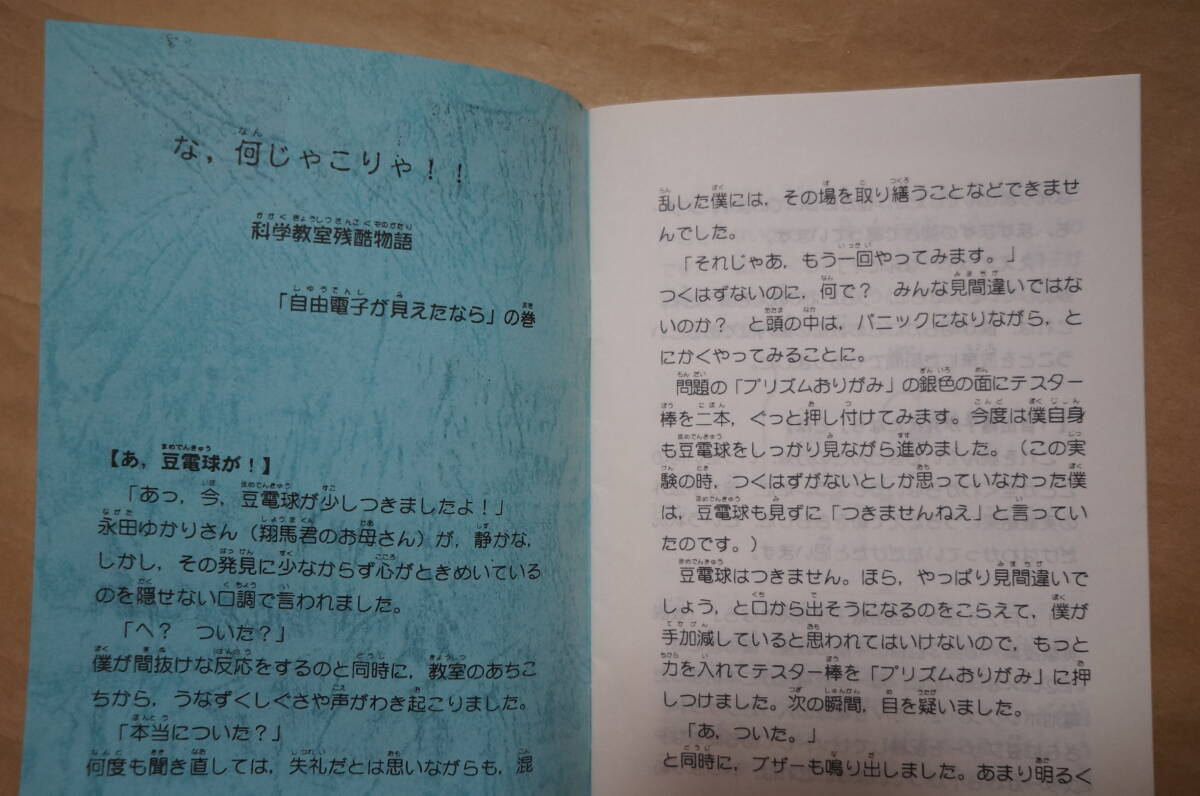 な，何じゃこりゃ！！
科学教室残酷物語
「自由電子が見えたなら」の巻
【あ，豆電球が！】
「あっ，今，豆電球が少しつきましたよ！」
永田ゆかりさん（翔馬君のお母さん）が，静かな，
しかし，その発見に少なからず心がときめいている
のを隠せない口調で言われました。
「へ？　ついた？」
僕が間抜けな反応をするのと同時に，教室のあちこ
ちから，うなずくしぐさや声がわき起こりました。
「本当についた？」
何度も聞き直しては，失礼だとは思いながらも，混
乱した僕には，その場を取り繕うことなどできませ
んでした。
「それじゃあ，もう一回やってみます。」
つくはずないのに，何で？　みんな見間違いではな
いのか？　と頭の中は，パニックになりながら，と
にかくやってみることに。
問題の「プリズムおりがみ」の銀色の面にテスター
棒を二本，ぐっと押し付けてみます。今度は僕自身
も豆電球をしっかり見ながら進めました。（この実
験の時，つくはずがないとしか思っていなかった僕
は，豆電球も見ずに「つきませんねえ」と言ってい
たのです。）
豆電球はつきません。ほら，やっぱり見間違いで
しょう，と口から出そうになるのをこらえて，僕が
手加減していると思われてはいけないので，もっと
力を入れてテスター棒を「プリズムおりがみ」に押
しつけました。次の瞬間，目を疑いました。
「あ，ついた。」
と同時に，ブザーも鳴り出しました。あまり明るく